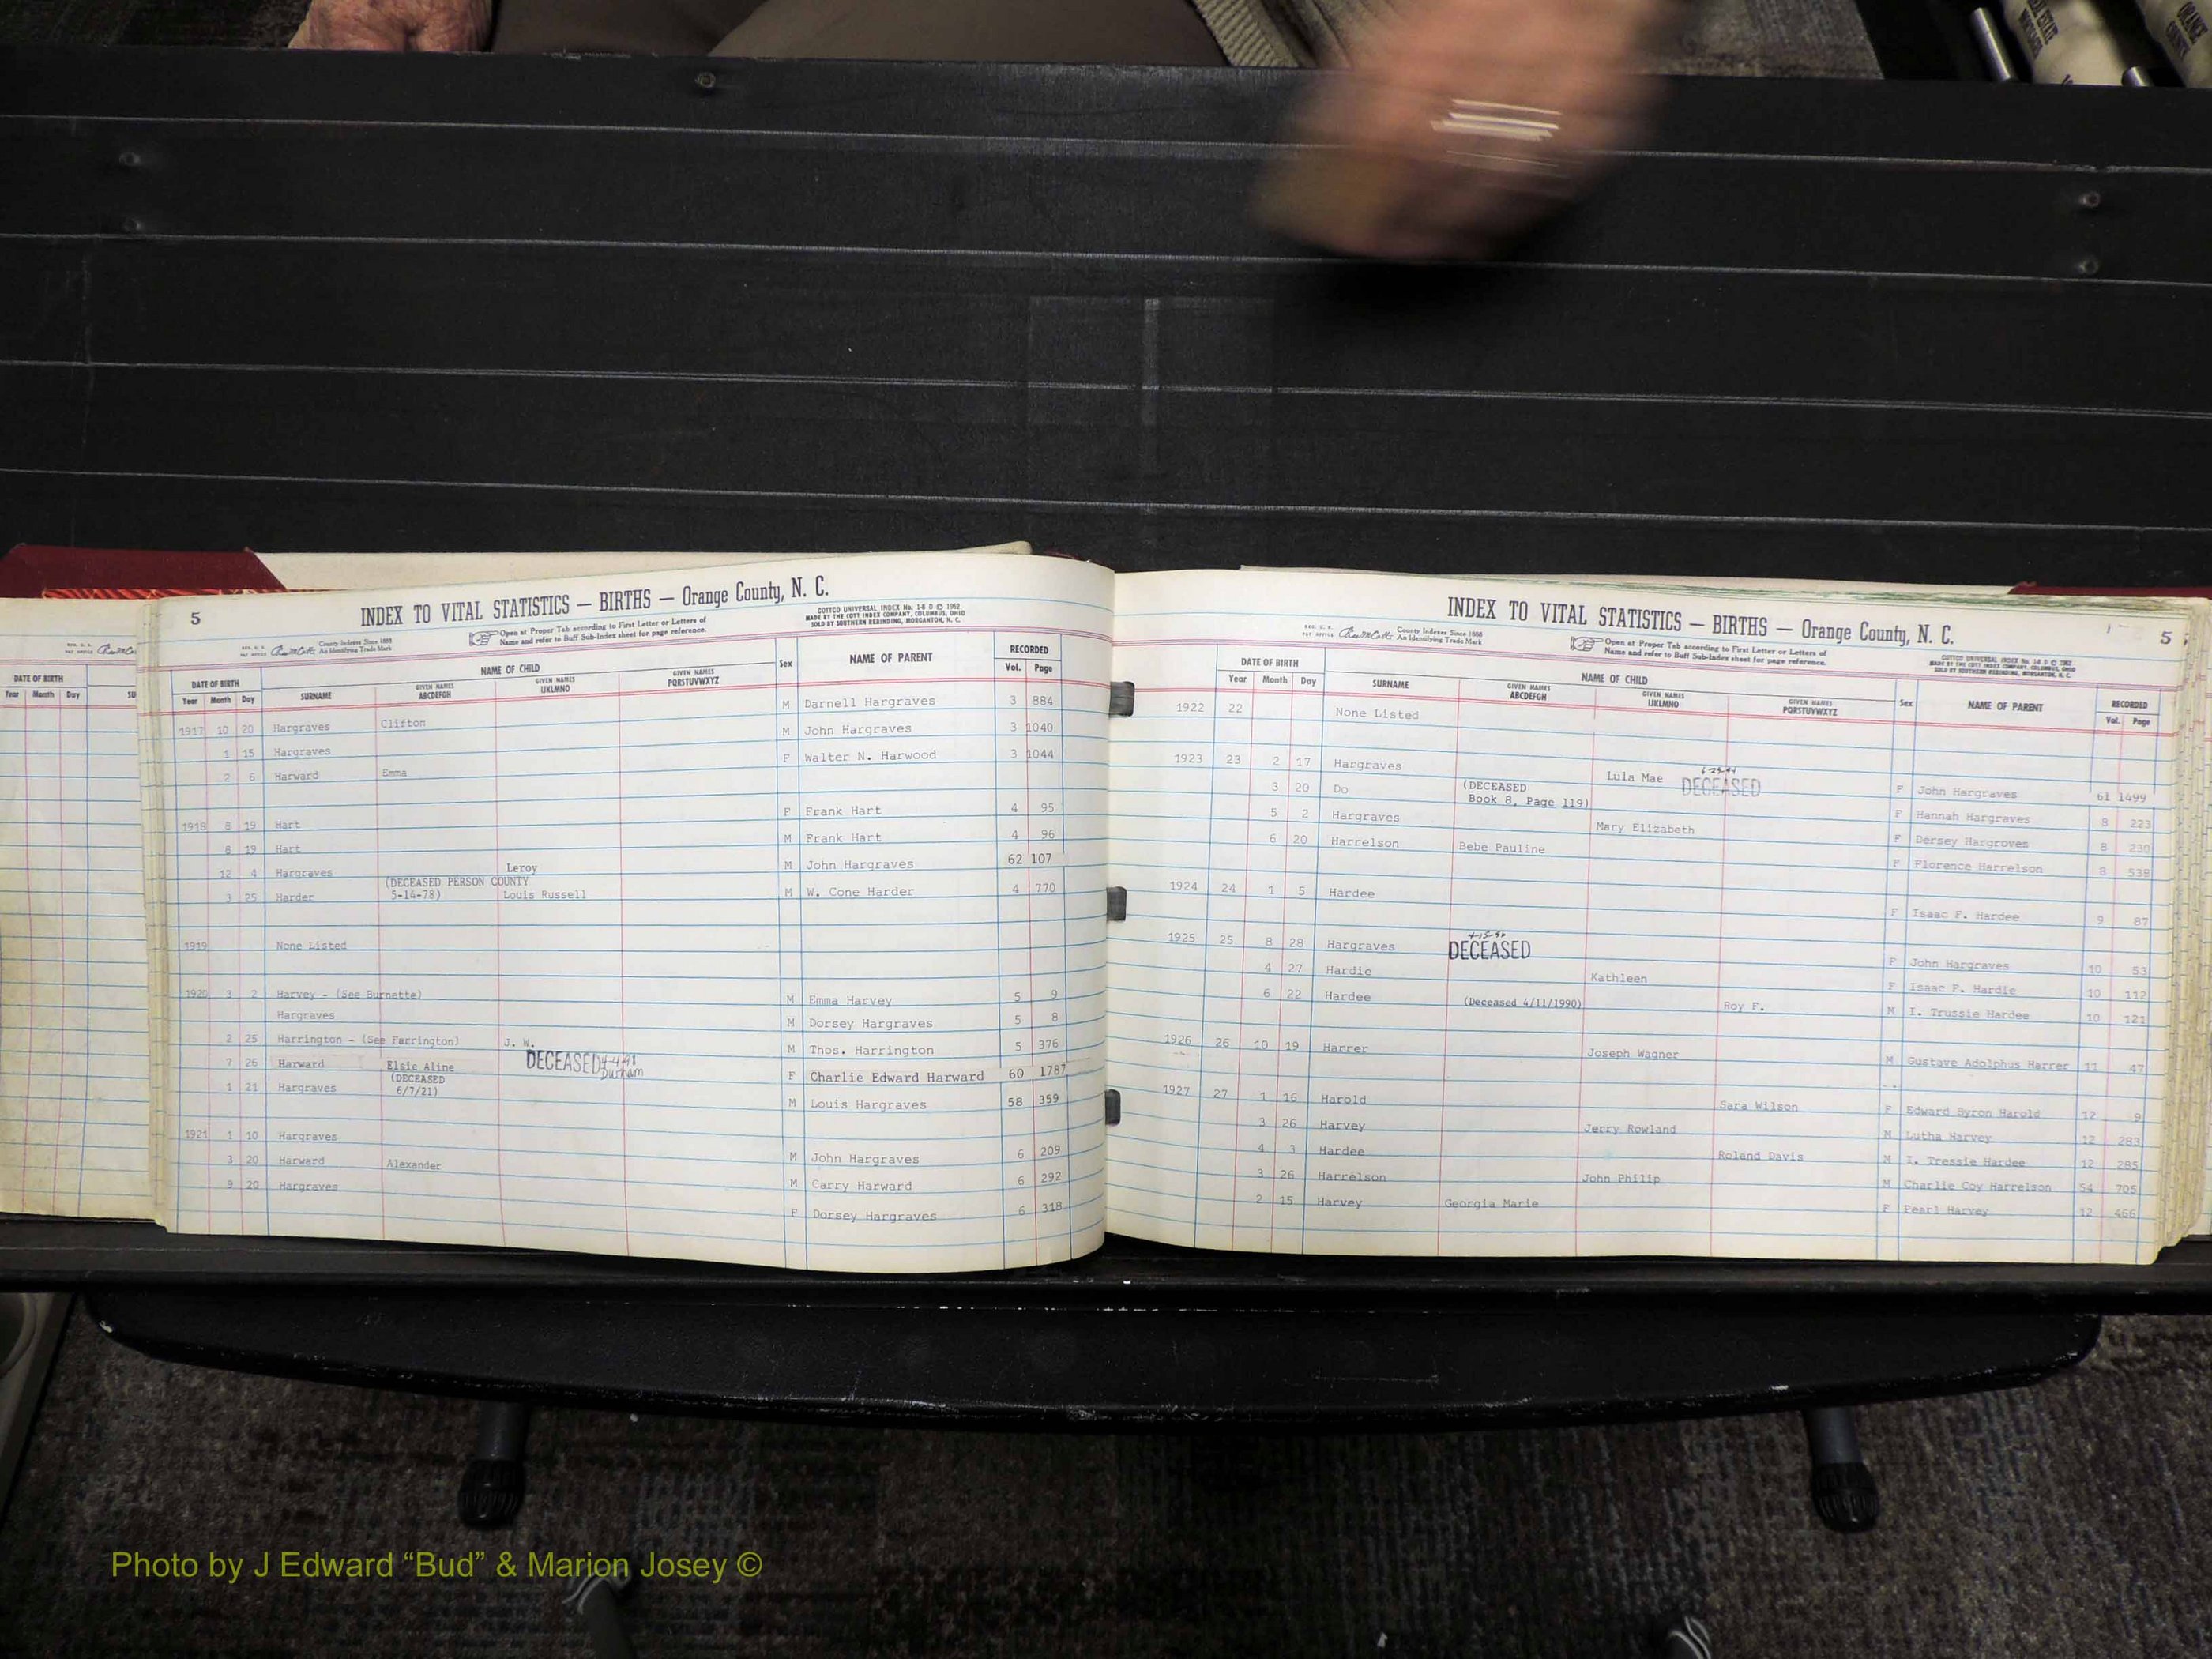 REAL ESTATE
ORANGE
DATE OF BIRTH
Year Month Day
SU
5
INDEX TO VITAL STATISTICS — BIRTHS — Orange County, N. C.
County Indexes Since 1888
An Identifying Trade Mark
Open at Proper Tab according to First Letter or Letters of
Name and refer to Buff Sub-Index sheet for page reference.
COTTCO UNIVERSAL INDEX No. 1-8 D © 1962
MADE BY THE COTT INDEX COMPANY, COLUMBUS, OHIO
SOLD BY SOUTHERN REBINDING, MORGANTON, N. C.
DATE OF BIRTH NAME OF CHILD Sex NAME OF PARENT RECORDED
Year Month Day SURNAME GIVEN NAMES ABCDEFGH GIVEN NAMES IJKLMNO GIVEN NAMES PQRSTUVWXYZ Vol. Page
1917 10 20 Hargraves Clifton M Darnell Hargraves 3 884
1 15 Hargraves M John Hargraves 3 1040
2 6 Harward Emma F Walter N. Harwood 3 1044
1918 8 19 Hart F Frank Hart 4 95
8 19 Hart M Frank Hart 4 96
12 4 Hargraves Leroy M John Hargraves 62 107
(DECEASED PERSON COUNTY
3 25 Harder 5-14-78) Louis Russell M W. Cone Harder 4 770
1919 None Listed
1920 3 2 Harvey - (See Burnette) M Emma Harvey 5 9
Hargraves M Dorsey Hargraves 5 8
2 25 Harrington - (See Farrington) J. W. M Thos. Harrington 5 376
7 26 Harward Elsie Aline DECEASED 4-4-98 Durham F Charlie Edward Harward 60 1787
(DECEASED
1 21 Hargraves 6/7/21) M Louis Hargraves 58 359
1921 1 10 Hargraves M John Hargraves 6 209
3 20 Harward Alexander M Carry Harward 6 292
9 20 Hargraves F Dorsey Hargraves 6 318
INDEX TO VITAL STATISTICS — BIRTHS — Orange County, N. C.
5
County Indexes Since 1888
An Identifying Trade Mark
Open at Proper Tab according to First Letter or Letters of
Name and refer to Buff Sub-Index sheet for page reference.
COTTCO UNIVERSAL INDEX No. 1-8 D © 1962
MADE BY THE COTT INDEX COMPANY, COLUMBUS, OHIO
SOLD BY SOUTHERN REBINDING, MORGANTON, N. C.
DATE OF BIRTH NAME OF CHILD Sex NAME OF PARENT RECORDED
Year Month Day SURNAME GIVEN NAMES ABCDEFGH GIVEN NAMES IJKLMNO GIVEN NAMES PQRSTUVWXYZ Vol. Page
1922 22 None Listed
1923 23 2 17 Hargraves Lula Mae DECEASED F John Hargraves 61 1499
3 20 Do (DECEASED Book 8, Page 119) F Hannah Hargraves 8 223
5 2 Hargraves Mary Elizabeth F Dersey Hargroves 8 230
6 20 Harrelson Bebe Pauline F Florence Harrelson 8 538
1924 24 1 5 Hardee F Isaac F. Hardee 9 87
1925 25 8 28 Hargraves DECEASED F John Hargraves 10 53
4 27 Hardie Kathleen F Isaac F. Hardie 10 112
6 22 Hardee (Deceased 4/11/1990) Roy F. M I. Trussie Hardee 10 121
1926 26 10 19 Harrer Joseph Wagner M Gustave Adolphus Harrer 11 47
1927 27 1 16 Harold Sara Wilson F Edward Byron Harold 12 9
3 26 Harvey Jerry Rowland M Lutha Harvey 12 283
4 3 Hardee Roland Davis M I. Tressie Hardee 12 285
3 26 Harrelson John Philip M Charlie Coy Harrelson 54 705
2 15 Harvey Georgia Marie F Pearl Harvey 12 466
Photo by J Edward “Bud” & Marion Josey ©